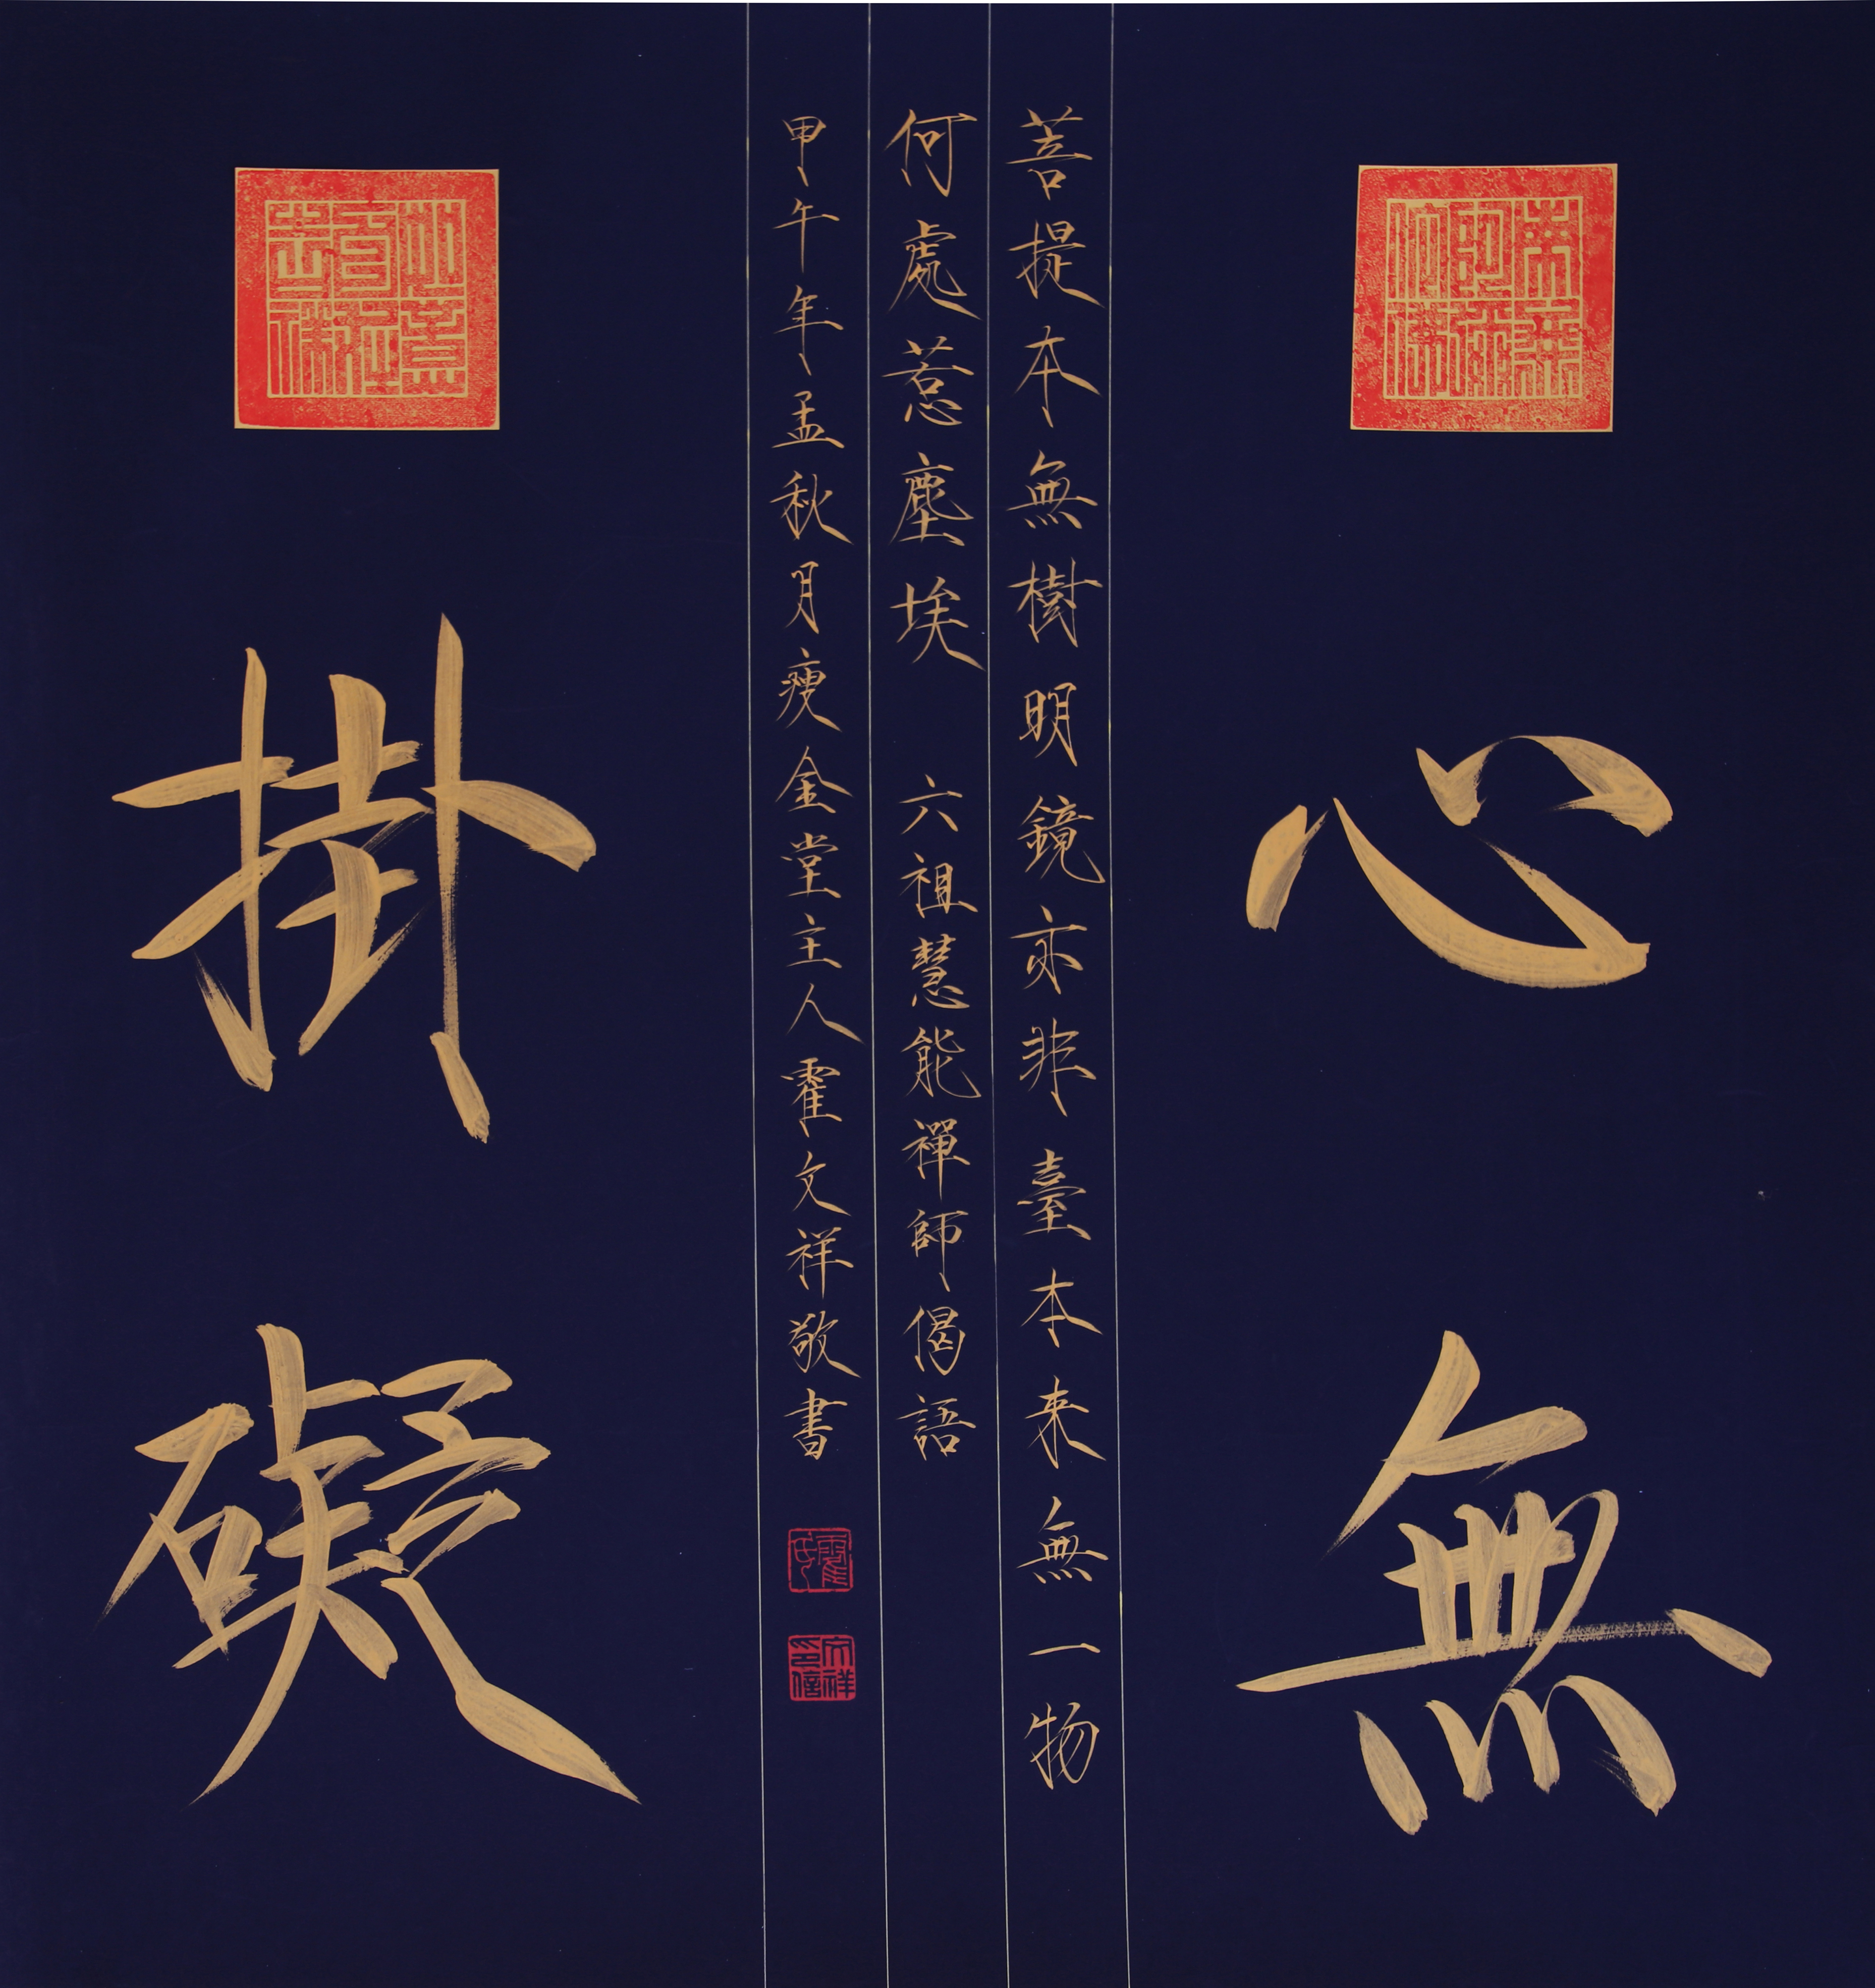 心無
菩提本無樹明鏡亦非臺本来無一物
何處惹塵埃 六祖慧能禪師偈語
甲午年孟秋月瘦金堂主人霍文祥敬書
霍氏
文祥印信
掛礙